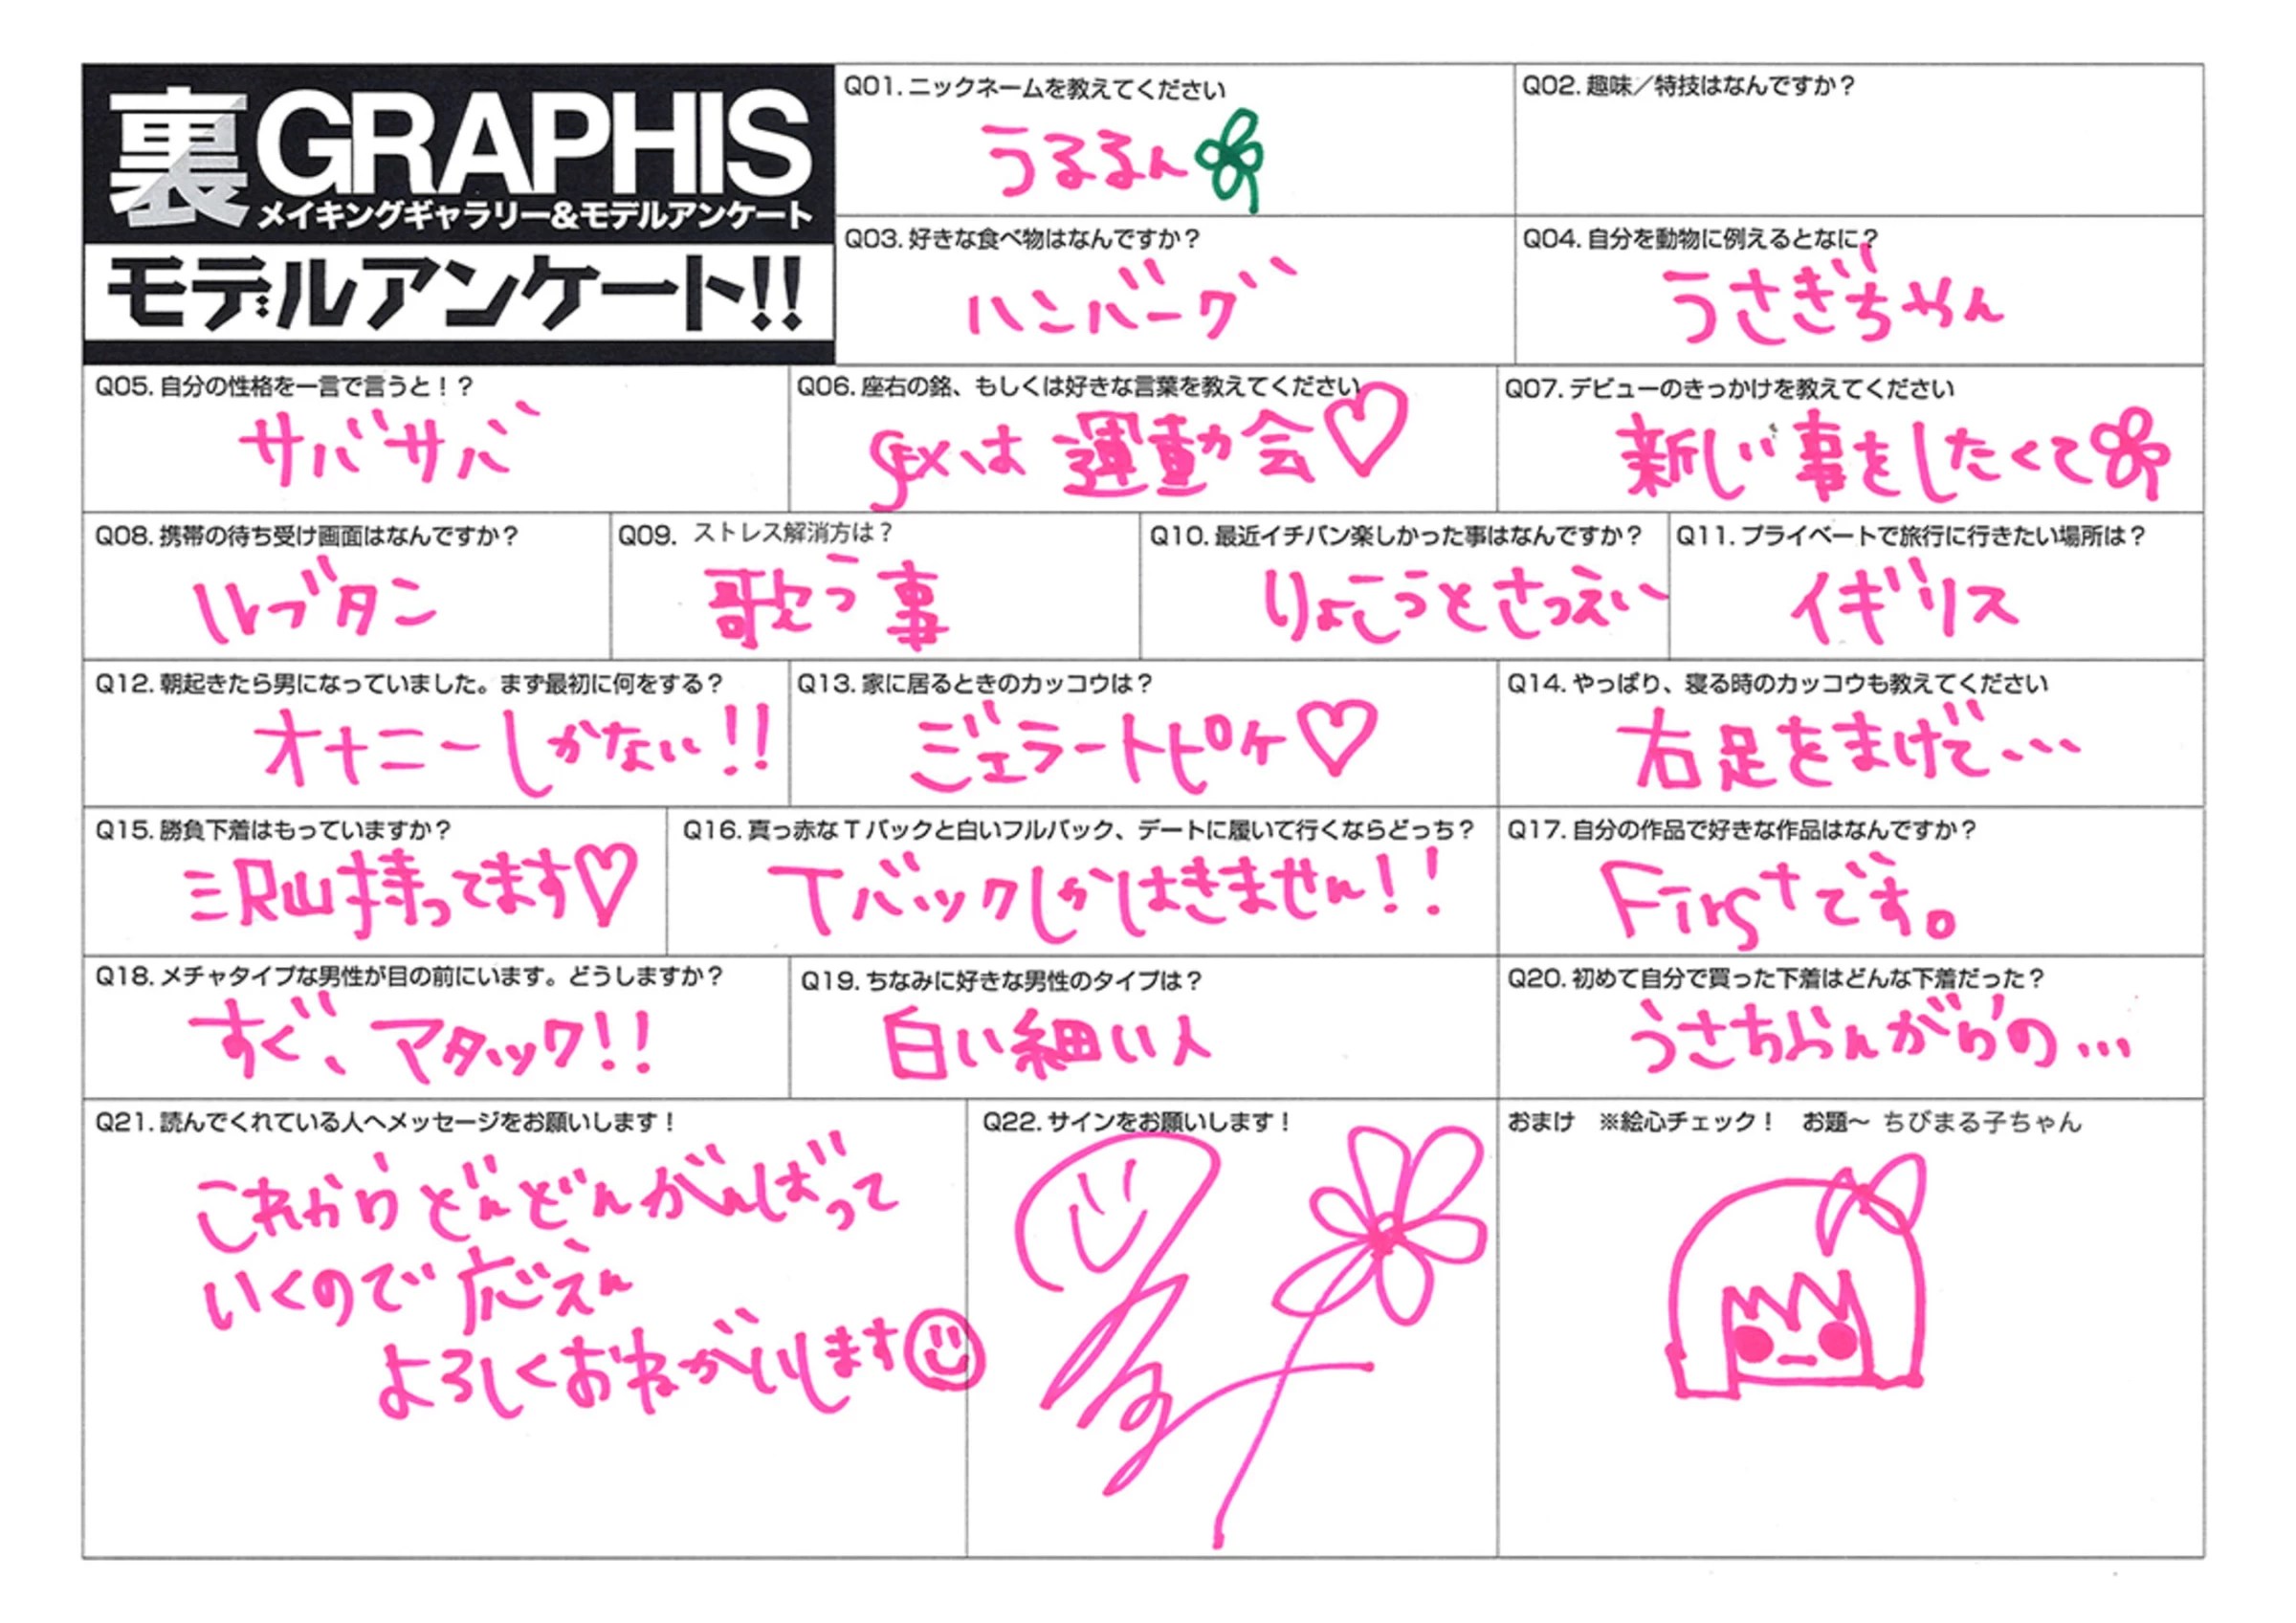 裏GRAPHIS
メイキングギャラリー&モデルアンケート
モデルアンケート!!
Q01. ニックネームを教えてください
うるるん
Q02. 趣味／特技はなんですか？
Q03. 好きな食べ物はなんですか？
ハンバーグ
Q04. 自分を動物に例えるとなに？
うさぎちゃん
Q05. 自分の性格を一言で言うと！？
サバサバ
Q06. 座右の銘、もしくは好きな言葉を教えてください
sexは運動会♡
Q07. デビューのきっかけを教えてください
新しい事をしたくて
Q08. 携帯の待ち受け画面はなんですか？
ルブタン
Q09. ストレス解消方は？
歌う事
Q10. 最近イチバン楽しかった事はなんですか？
りょこうとさつえい
Q11. プライベートで旅行に行きたい場所は？
イギリス
Q12. 朝起きたら男になっていました。まず最初に何をする？
オナニーしかない!!
Q13. 家に居るときのカッコウは？
ジェラートピケ♡
Q14. やっぱり、寝る時のカッコウも教えてください
右足をまげて…
Q15. 勝負下着はもっていますか？
沢山持ってます♡
Q16. 真っ赤なTバックと白いフルバック、デートに履いて行くならどっち？
Tバックしかはきません!!
Q17. 自分の作品で好きな作品はなんですか？
Firstです。
Q18. メチャタイプな男性が目の前にいます。どうしますか？
すぐ、アタック!!
Q19. ちなみに好きな男性のタイプは？
白い細い人
Q20. 初めて自分で買った下着はどんな下着だった？
がらの…
Q21. 読んでくれている人へメッセージをお願いします！
これからどんどんがんばって
いくので応えん
よろしくおねがいします
Q22. サインをお願いします！
おまけ　※絵心チェック！　お題〜 ちびまる子ちゃん